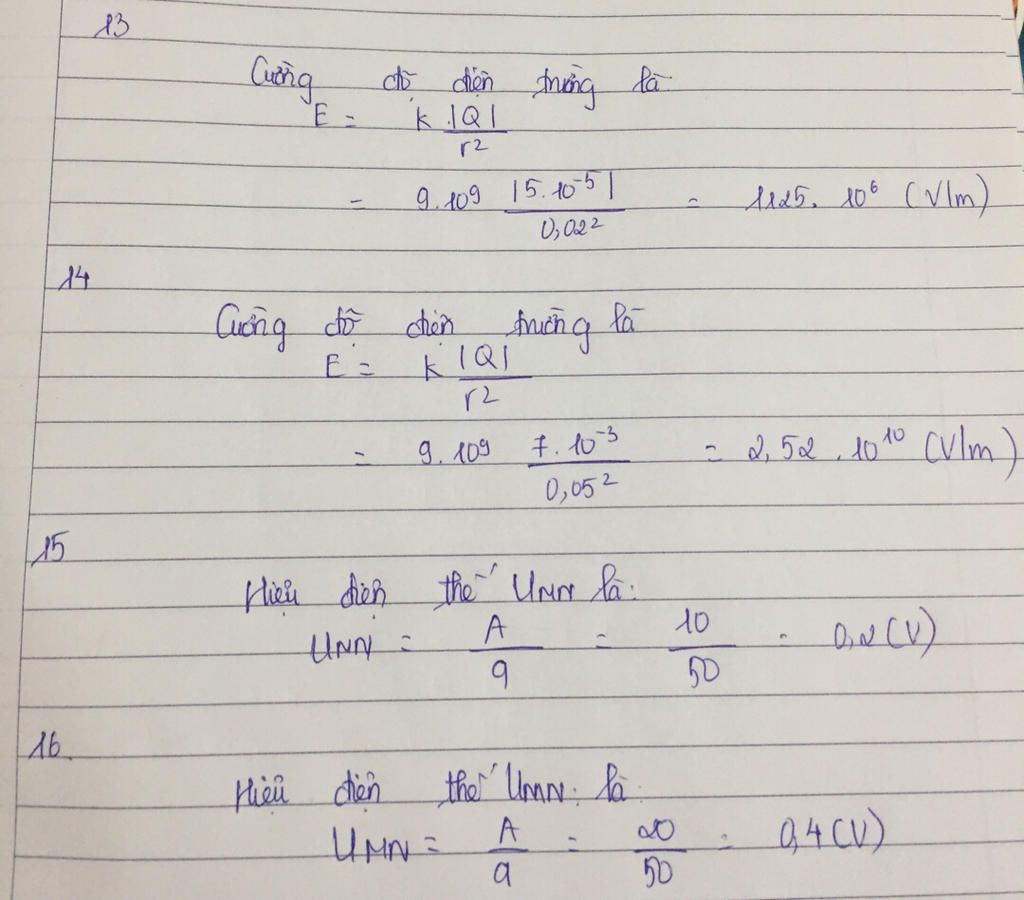 13
Cường độ điện trường là
E = k.|Q|/r²
= 9.10⁹ |5.10⁻⁵|/0,02² = 1125.10⁶ (V/m)
14
Cường độ điện trường là
E = k |Q|/r²
= 9.10⁹ 7.10⁻³/0,05² = 2,52.10¹⁰ (V/m)
15
Hiệu điện thế UMN là:
UMN = A/q = 10/50 = 0,2 (V)
16.
Hiệu điện thế UMN là:
UMN = A/q = 20/50 = 0,4 (V)